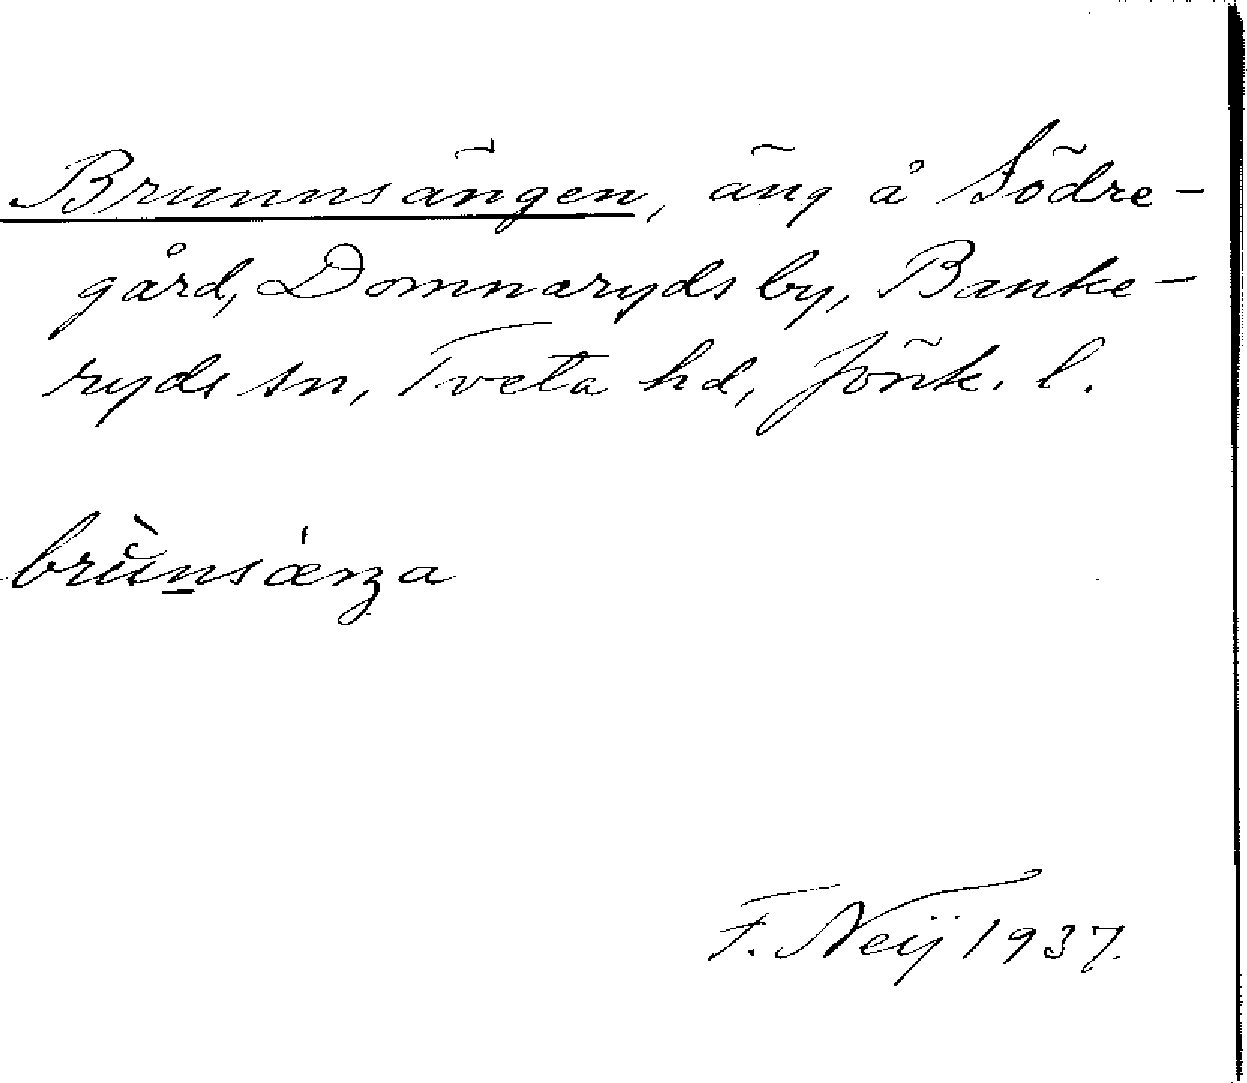 Brunnsängen, äng å Södre-
gård, Domnaryds by, Banke-
ryds sn, Tveta hd, Jönk. l.
brùn̲sǽŋa
F. Neij 1937.